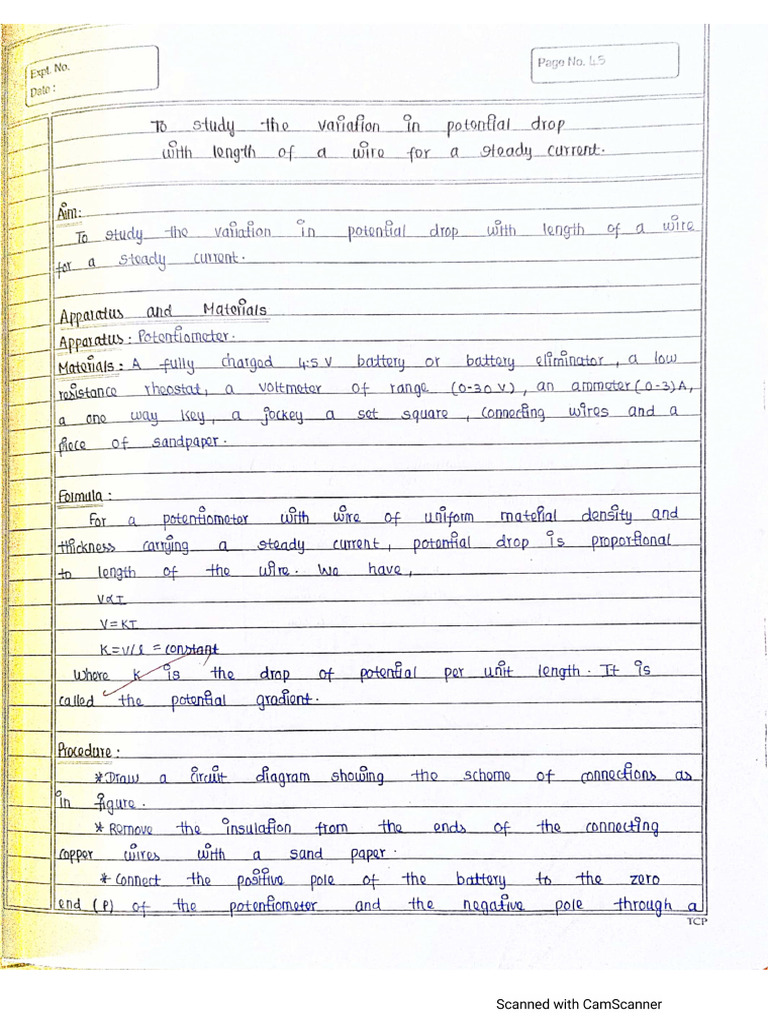 Expt. No.
Date :
Page No. 45
To study the variation in potential drop
with length of a wire for a steady current.
Aim:
To study the variation in potential drop with length of a wire
for a steady current.
Apparatus and Materials
Apparatus : Potentiometer.
Materials : A fully charged 4.5 V battery or battery eliminator, a low
resistance rheostat, a voltmeter of range (0-30 V), an ammeter (0-3)A,
a one way key, a jockey a set square, connecting wires and a
piece of sandpaper.
Formula :
For a potentiometer with wire of uniform material density and
thickness carrying a steady current, potential drop is proportional
to length of the wire. We have,
V∝I
V=KI
K=V/l = constant
Where K is the drop of potential per unit length. It is
called the potential gradient.
Procedure :
* Draw a circuit diagram showing the scheme of connections as
in figure.
* Remove the insulation from the ends of the connecting
copper wires with a sand paper.
* Connect the positive pole of the battery to the zero
end (P) of the potentiometer and the negative pole through a
TCP
Scanned with CamScanner